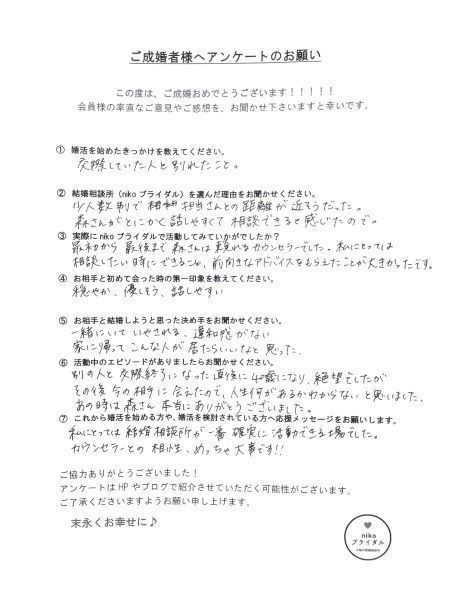 ご成婚者様へアンケートのお願い
この度は、ご成婚おめでとうございます！！！！！
会員様の率直なご意見やご感想を、お聞かせ下さいますと幸いです。
① 婚活を始めたきっかけを教えてください。
交際していた人と別れたこと。
② 結婚相談所（niko ブライダル）を選んだ理由をお聞かせください。
少人数制で 担当さんとの距離が近そうだった。
森さんがとにかく話しやすくて 相談できると感じたので。
③ 実際に niko ブライダルで活動してみていかがでしたか？
最初から 最後まで 森さんは頼れるカウンセラーでした。私にとっては
相談したい時にできること、前向きなアドバイスをもらえたことが大きかったです。
④ お相手と初めて会った時の第一印象を教えてください。
穏やか、優しそう、話しやすい
⑤ お相手と結婚しようと思った決め手をお聞かせください。
一緒にいて いやされる、違和感がない
家に帰って こんな人が 居たらいいなと 思った、
⑥ 活動中のエピソードがありましたらお聞かせください。
別の人と 交際終了になった直後に 40歳になり、絶望でしたが
その後 今の相手に 会えたので、人生何があるかわからない と思いました、
あの時は森さん 本当にありがとうございました。
⑦ これから婚活を始める方や、婚活を検討されている方へ応援メッセージをお願いします。
私にとっては 結婚相談所が 一番 確実に 活動できる場でした。
カウンセラーとの 相性、めっちゃ 大事です!!
ご協力ありがとうございました！
アンケートは HP やブログで紹介させていただく可能性がございます。
ご了承くださいますようお願い申し上げます。
末永くお幸せに♪
niko
ブライダル